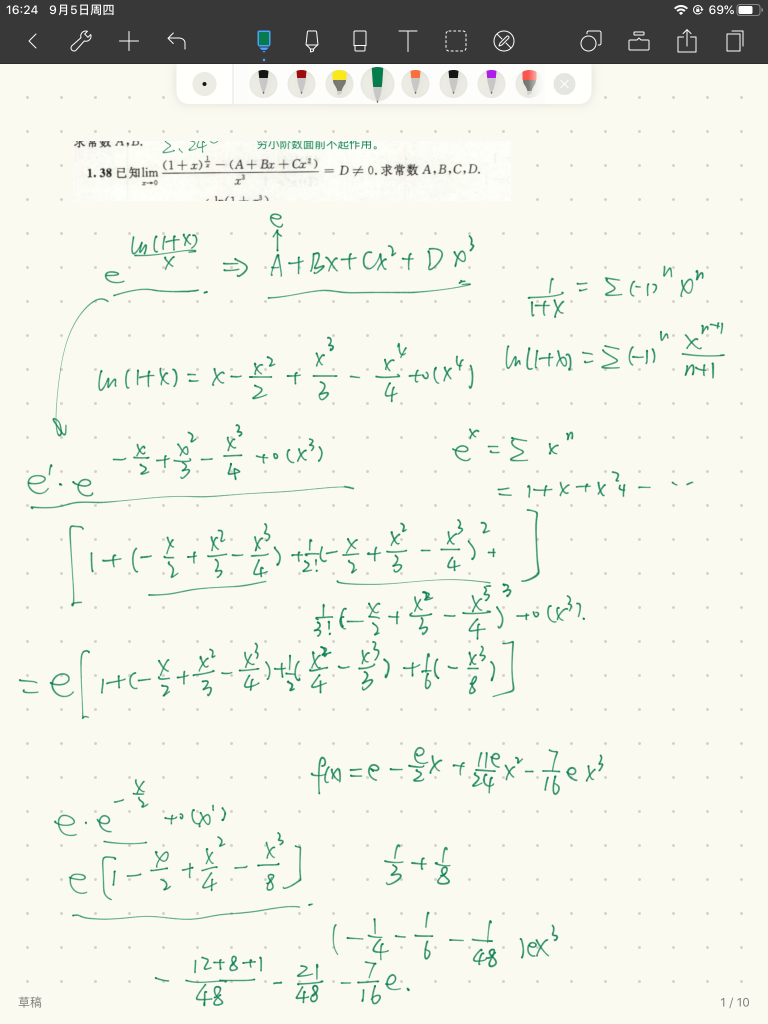 16:24 9月5日周四
69%
求常数 A,B.
2、24
穷小阶数面前不起作用。
1.38 已知 lim_{x→0} ((1+x)^{1/x} − (A+Bx+Cx²))/x³ = D ≠ 0. 求常数 A,B,C,D.
e
e^{ln(1+x)/x} ⇒ A+Bx+Cx²+Dx³
1/(1+x) = Σ(-1)^n x^n
ln(1+x) = x - x²/2 + x³/3 - x⁴/4 + o(x⁴)
ln(1+x) = Σ(-1)^n x^{n+1}/(n+1)
e^1 · e^{-x/2 + x²/3 - x³/4 + o(x³)}
e^x = Σ x^n
= 1+x+x²4 - ⋯
[1+(-x/2 + x²/3 - x³/4) + 1/2!(-x/2 + x²/3 - x³/4)² + ]
1/3!(-x/2 + x²/3 - x³/4)³ + o(x³).
= e[1+(-x/2 + x²/3 - x³/4) + 1/2(x²/4 - x³/3) + 1/6(-x³/8)]
f(x) = e - e/2 x + 11e/24 x² - 7/16 e x³
e·e^{-x/2} + o(x¹)
e[1 - x/2 + x²/4 - x³/8]
1/3 + 1/8
(-1/4 - 1/6 - 1/48)ex³
- (12+8+1)/48 - 21/48 - 7/16 e.
草稿
1 / 10